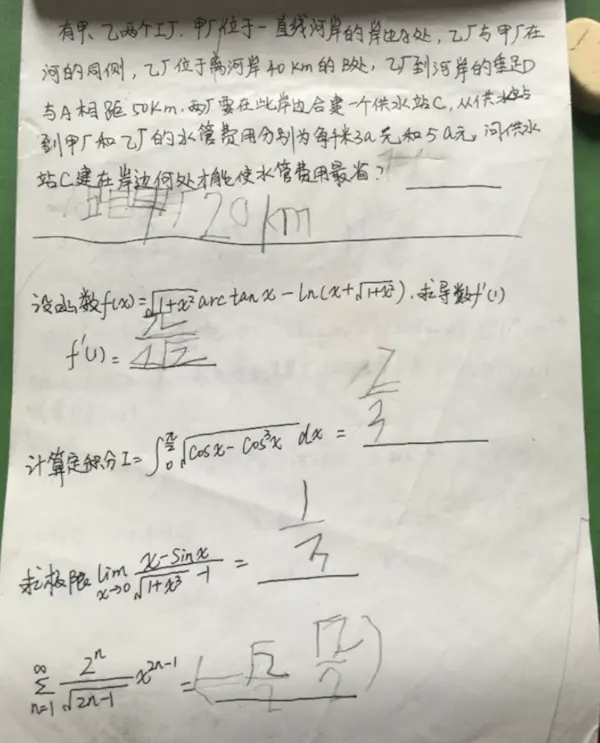 有甲、乙两个工厂.甲厂位于一直线河岸的岸边A处,乙厂与甲厂在
河的同侧,乙厂位于离河岸40km的B处,乙厂到河岸的垂足D
与A相距50km.两厂要在此岸边合建一个供水站C,从供水站
到甲厂和乙厂的水管费用分别为每千米3a元和5a元,问供水
站C建在岸边何处才能使水管费用最省?
20km
设函数f(x)=√(1+x²) arctanx-ln(x+√(1+x²)).求导数f'(1)
f'(1)= π/(4√2)
计算定积分I=∫_0^(π/2) √(cosx-cos³x) dx = 2/3
求极限 lim_(x→0) (x-sinx)/(√(1+x³)-1) = 1/3
∑_(n=1)^∞ 2^n/√(2n-1) x^(2n-1) = (-√2/2 √2/2)